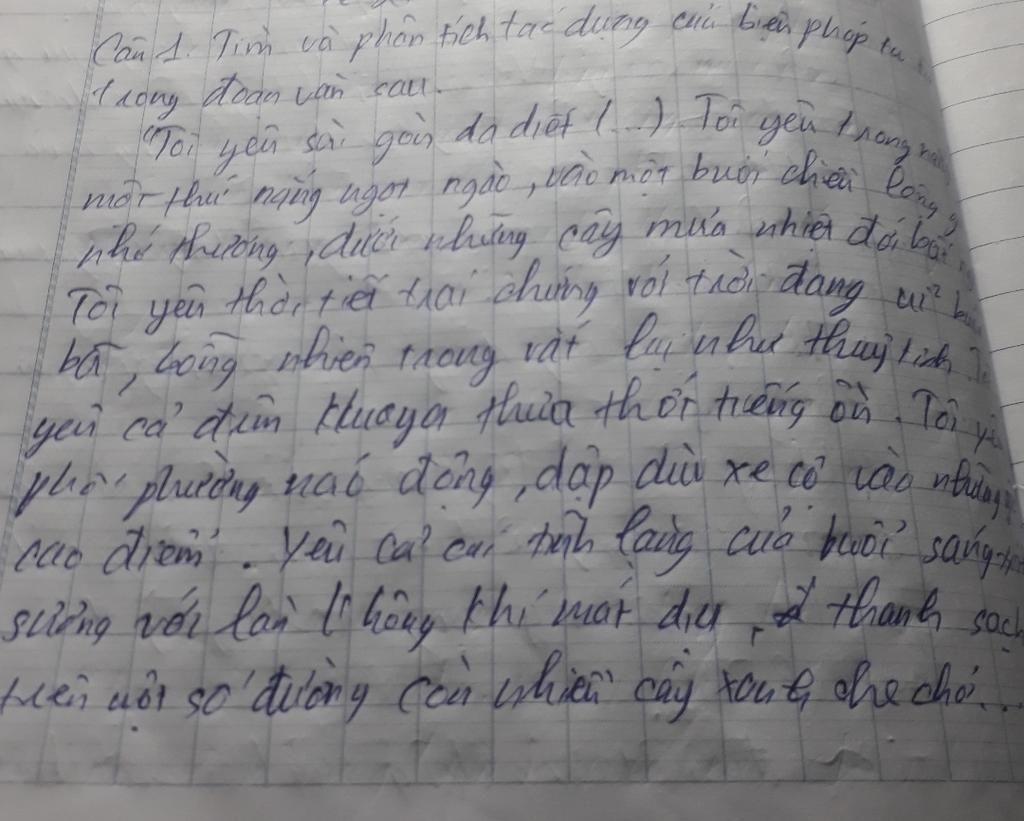 Câu 1. Tìm và phân tích tác dụng của biện pháp tu
trong đoạn văn sau.
"Tôi yêu sài gòn da diết (...) Tôi yêu trong
một thứ nắng ngọt ngào, vào một buổi chiều lộng
nhớ thương, dưới những cây mưa nhiệt đới bất
Tôi yêu thời tiết trái chứng với trời đang ui
bã, bỗng nhiên trong vắt lại như thuỷ tinh.
yêu cả đêm khuya thưa thớt tiếng ồn. Tôi
phố phường náo động, dập dìu xe cộ vào những
cao điểm. Yêu cả cái tĩnh lặng của buổi sáng
sương với làn không khí mát dịu, thanh sạch
trên một số đường còn nhiều cây xanh che chở...